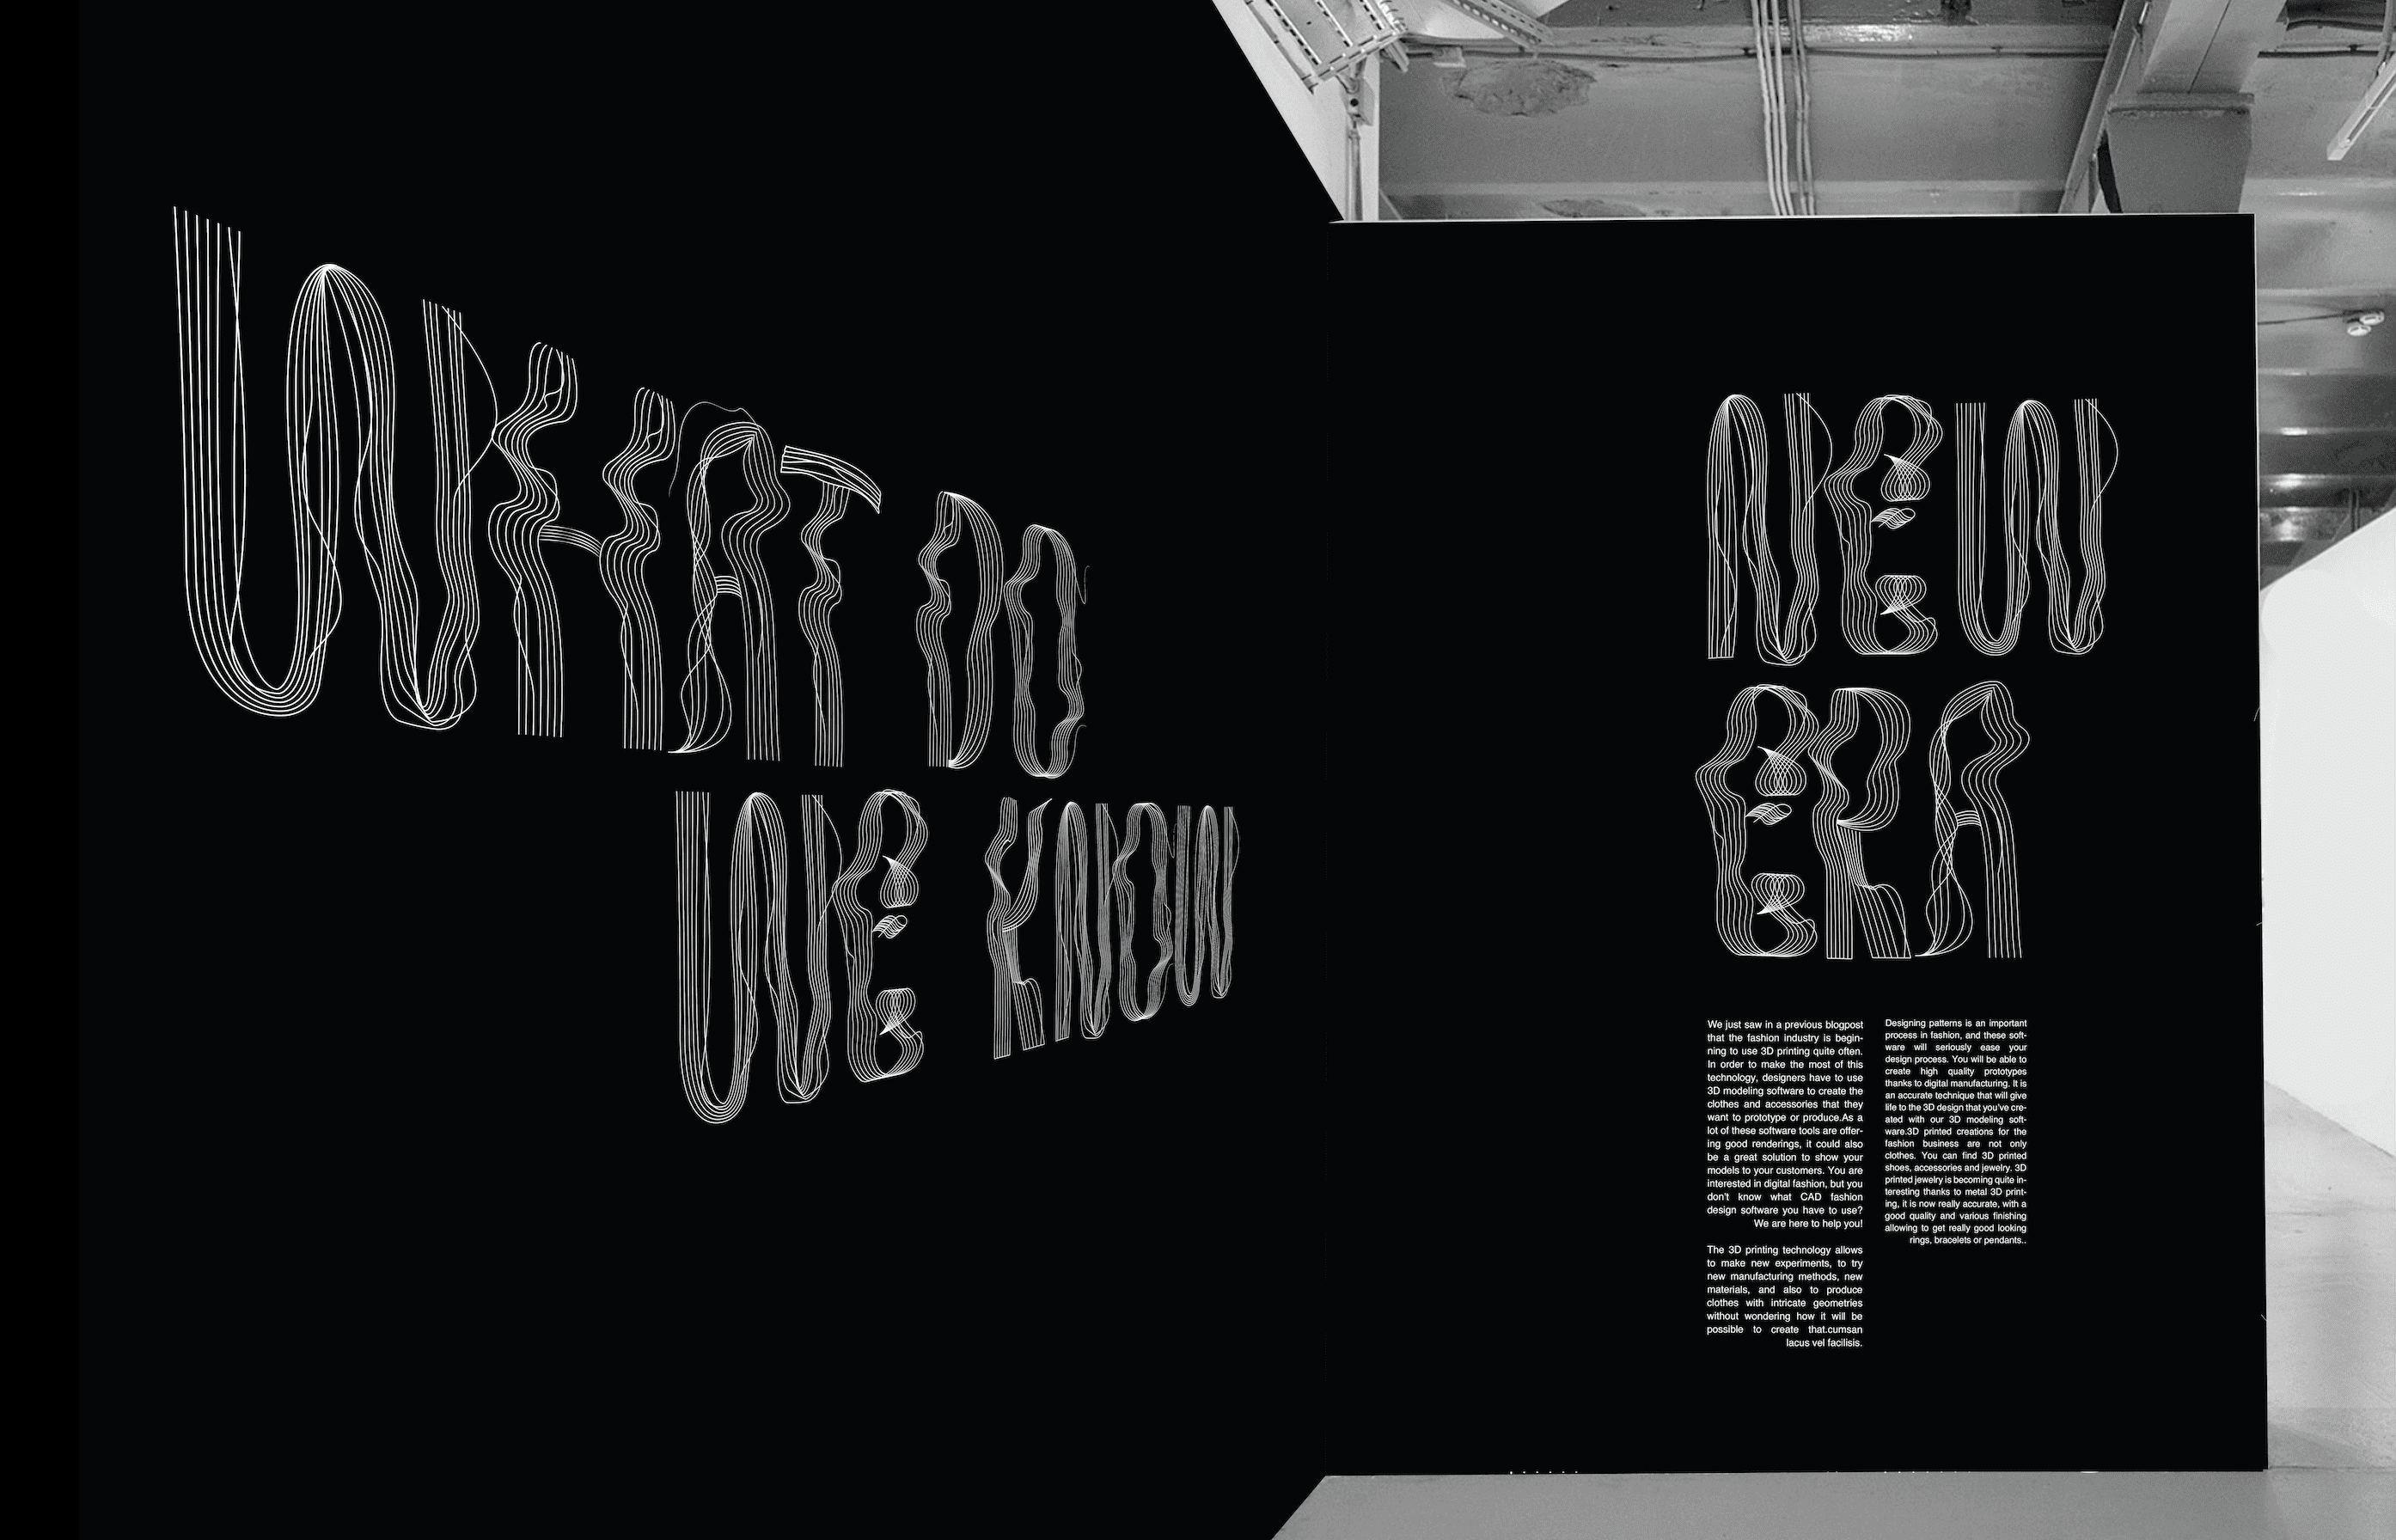 WHAT DO
WE KNOW
NEW
ERA
We just saw in a previous blogpost
that the fashion industry is begin-
ning to use 3D printing quite often.
In order to make the most of this
technology, designers have to use
3D modeling software to create the
clothes and accessories that they
want to prototype or produce.As a
lot of these software tools are offer-
ing good renderings, it could also
be a great solution to show your
models to your customers. You are
interested in digital fashion, but you
don't know what CAD fashion
design software you have to use?
We are here to help you!
The 3D printing technology allows
to make new experiments, to try
new manufacturing methods, new
materials, and also to produce
clothes with intricate geometries
without wondering how it will be
possible to create that.cumsan
lacus vel facilisis.
Designing patterns is an important
process in fashion, and these soft-
ware will seriously ease your
design process. You will be able to
create high quality prototypes
thanks to digital manufacturing. It is
an accurate technique that will give
life to the 3D design that you've cre-
ated with our 3D modeling soft-
ware.3D printed creations for the
fashion business are not only
clothes. You can find 3D printed
shoes, accessories and jewelry. 3D
printed jewelry is becoming quite in-
teresting thanks to metal 3D print-
ing, it is now really accurate, with a
good quality and various finishing
allowing to get really good looking
rings, bracelets or pendants..